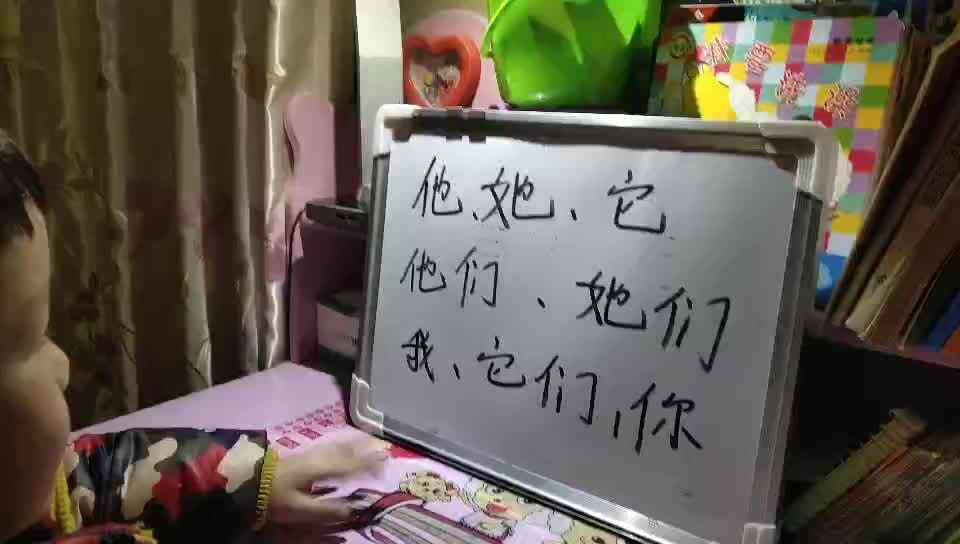 他、她、它
他们、她们
我、它们,你